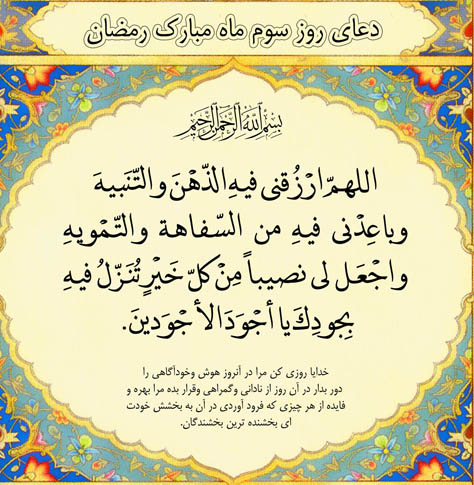 دعای روز سوم ماه مبارک رمضان
بسم الله الرحمن الرحیم
اللهمّ ارْزُقنی فیهِ الذّهْنَ والتّنَبیهَ
وباعِدْنی فیهِ من السّفاهة والتّمْویهِ
واجْعَل لی نصیباً مِنْ کلّ خَیْرٍ تُنَزّلُ فیهِ
بِجودِكَ یا أجوَدَ الأجْوَدینَ.
خدایا روزی کن مرا در آنروز هوش وخودآگاهی را
دور بدار در آن روز از نادانی وگمراهی وقرار بده مرا بهره و
فایده از هر چیزی که فرود آوردی در آن به بخشش خودت
ای بخشنده ترین بخشندگان.